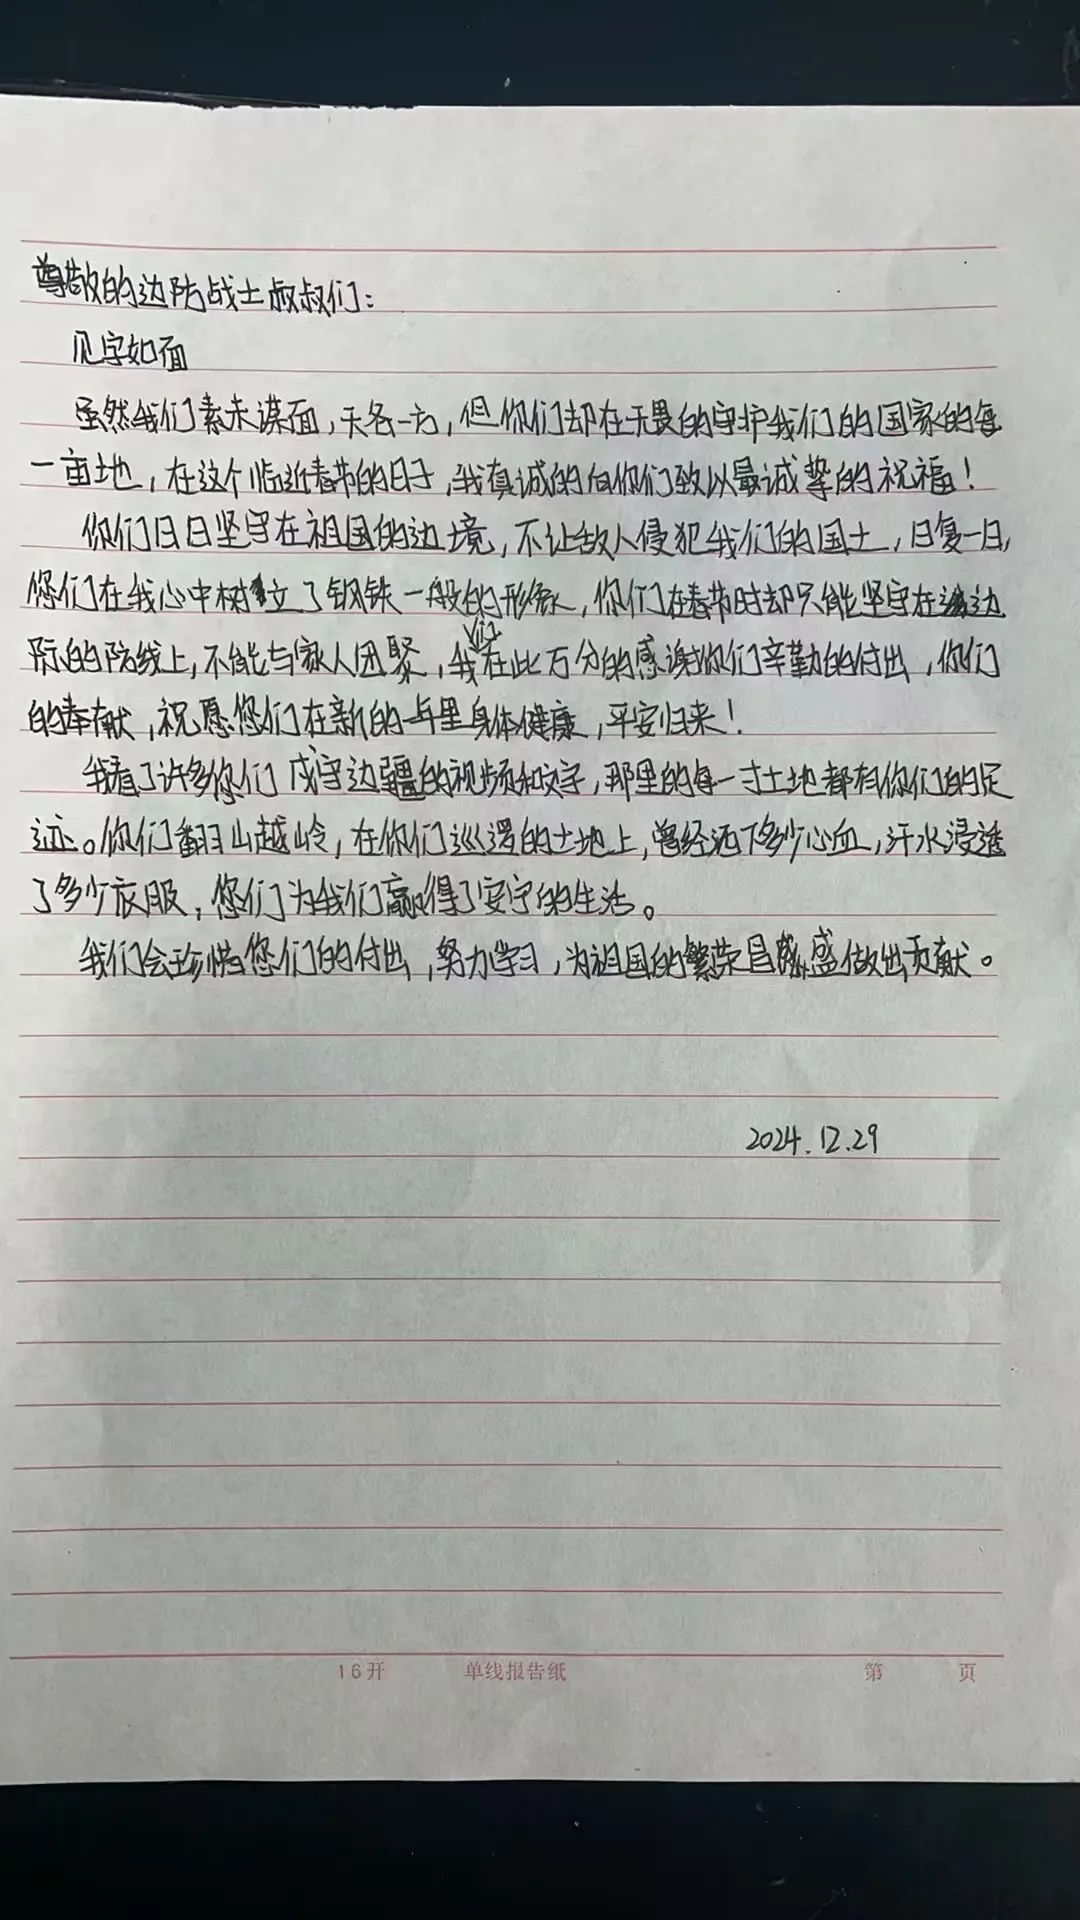 尊敬的边防战士叔叔们：
见字如面
虽然我们素未谋面，天各一方，但你们却在无畏的守护我们的国家的每
一亩地，在这个临近春节的日子，我真诚的向你们致以最诚挚的祝福！
你们日日坚守在祖国的边境，不让敌人侵犯我们的国土，日复一日，
您们在我心中树立了钢铁一般的形象，你们在春节时却只能坚守在边
际的防线上，不能与家人团聚，我在此万分的感谢你们辛勤的付出，你们
的奉献，祝愿您们在新的一年里身体健康，平安归来！
我看了许多你们戍守边疆的视频和文字，那里的每一寸土地都有你们的足
迹。你们翻山越岭，在你们巡逻的土地上，曾经洒下多少心血，汗水浸透
了多少衣服，您们为我们赢得了安宁的生活。
我们会珍惜您们的付出，努力学习，为祖国的繁荣昌盛做出贡献。
2024.12.29
16开 单线报告纸 第 页